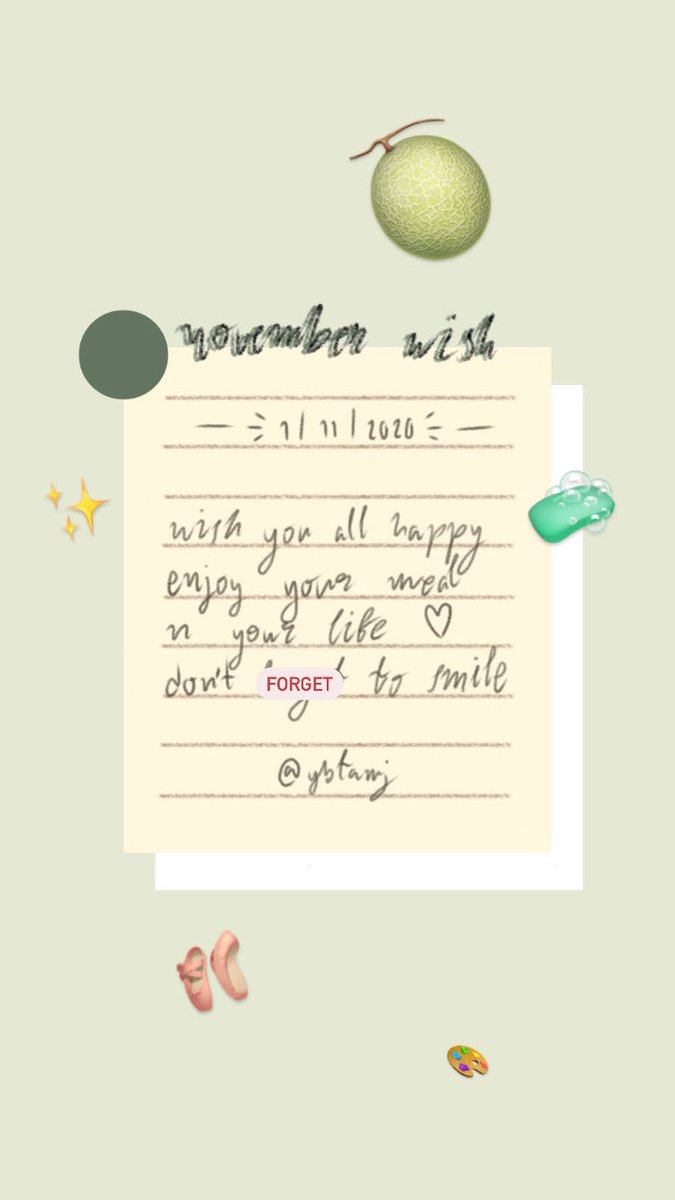 november wish
— 1 | 11 | 2020 —
wish you all happy
enjoy your meal
n your life ♡
don't FORGET to smile
@ybtamj